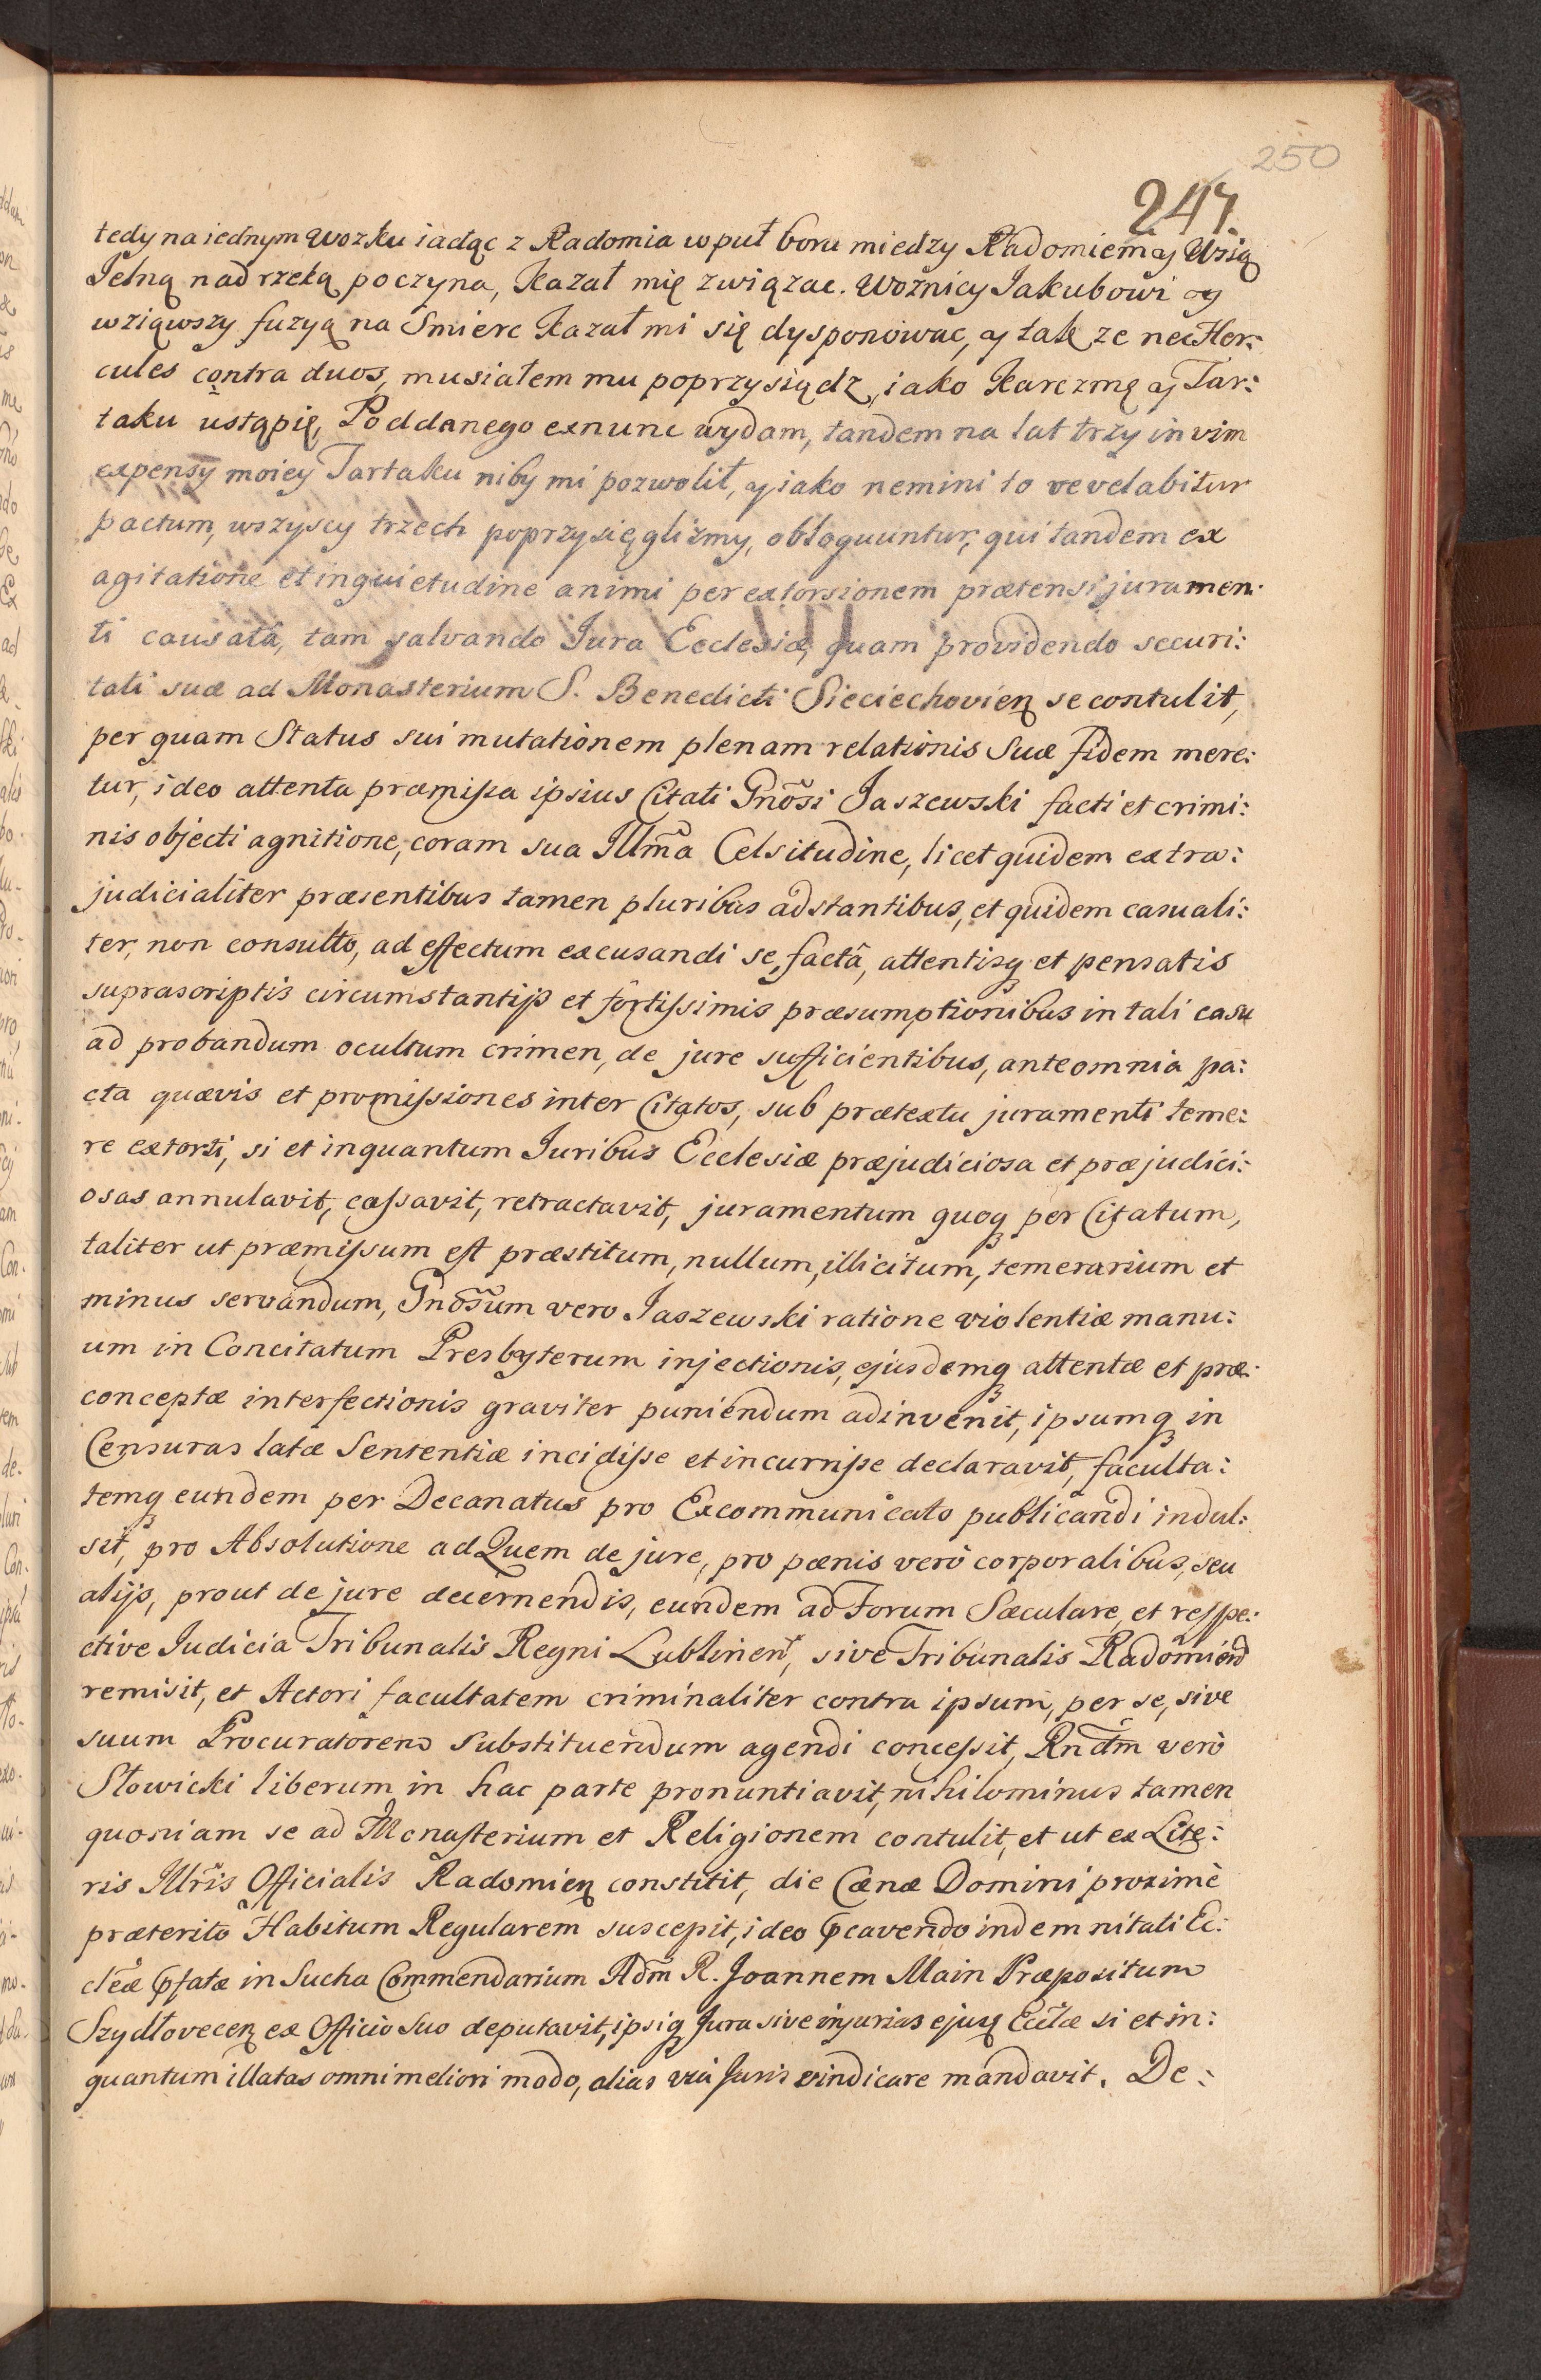 250
247.
tedy na iednym Wozku iadąc z Radomia w puł boru miedzy Radomiem y Wsią
Pelną nad rzeką poczyna, kazał mię związac. Woznicy Jakubowi y
wziąwszy fuzyą na Smierc kazał mi się dysponowac, y tak ze nec Her:
cules contra duos, musiałem mu poprzysiądz, iako karczmę y Tar:
taku ustąpię, Poddanego exnunc wydam, tandem na lat trzy in vim
expensy moiey Tartaku niby mi pozwolił, y iako nemini to revelabitur
pactum, wszyscy trzech poprzysięglismy, obloquuntur, qui tandem ex
agitatione et inquietudine animi per extorsionem prætensi juramen:
ti causatâ, tam salvando Jura Ecclesiæ, quam providendo securi:
tati suæ ad Monasterium S. Benedicti Sieciechovien se contulit,
per quam Status sui mutationem plenam relationis Suæ fidem mere:
tur, ideo attenta præmissa ipsius Citati Gnõsi Jaszewski facti et crimi:
nis objecti agnitione, coram sua Illm̃a Celsitudine, licet quidem extra:
judicialiter præsentibus tamen pluribus adstantibus, et quidem casuali:
ter, non consulto, ad effectum excusandi se, factâ, attentisq et pensatis
suprascriptis circumstantijs et fortissimis præsumptionibus in tali casu
ad probandum ocultum crimen, de jure sufficientibus, ante omnia pa:
cta quævis et promissiones inter Citatos, sub prætextu juramenti teme:
re extorti, si et inquantum Juribus Ecclesiæ præjudiciosa et præjudici:
osas annulavit, cassavit, retractavit, juramentum quoq per Citatum,
taliter ut præmissum est præstitum, nullum, illicitum, temerarium et
minus servandum, Gnõsum vero Jaszewski ratione violentiæ manu:
um in Concitatum Presbyterum injectionis, ejusdemq attentæ et præ:
conceptæ interfectionis graviter puniendum adinvenit, ipsumq in
Censuras latæ Sententiæ incidisse et incurrisse declaravit, faculta:
temq eundem per Decanatus pro Excommunicato publicandi indul:
sit, pro Absolutione ad Quem de jure, pro pœnis verò corporalibus, seu
alijs, prout de jure decernendis, eundem ad Forum Sæculare, et respe:
ctive Judicia Tribunalis Regni Lublinen, sive Tribunalis Radomien
remisit, et Actori facultatem criminaliter contra ipsum, per se, sive
suum Procuratorem substituendum agendi concessit, Rndm̃ verò
Słowicki liberum in hac parte pronuntiavit, nihilominus tamen
quoniam se ad Monasterium et Religionem contulit, et ut ex Lite:
ris Illr̃is Officialis Radomien constitit, die Cænæ Domini proximè
præterito Habitum Regularem suscepit, ideo Pcavendo indemnitati Ec:
cleæ Pfatæ in Sucha Commendarium Adm̃ R. Joannem Main Præpositum
Szydłovecen ex Officio Suo deputavit, ipsiq Jura sive injurias ejusq Ecclæ si et in:
quantum illatas omni meliori modo, alias viâ Juris vindicare mandavit. De: